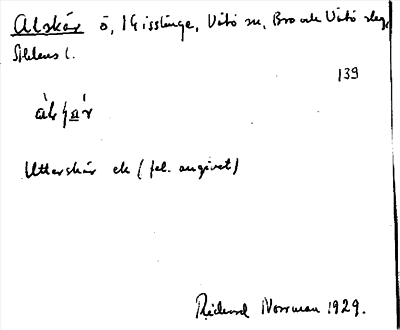 Alskär ö, i Gisslinge, Vätö sn, Bro och Vätö slag,
Sthlms l.
139
Utterskär ek (fel. angivet)
Rickard Norrman 1929.